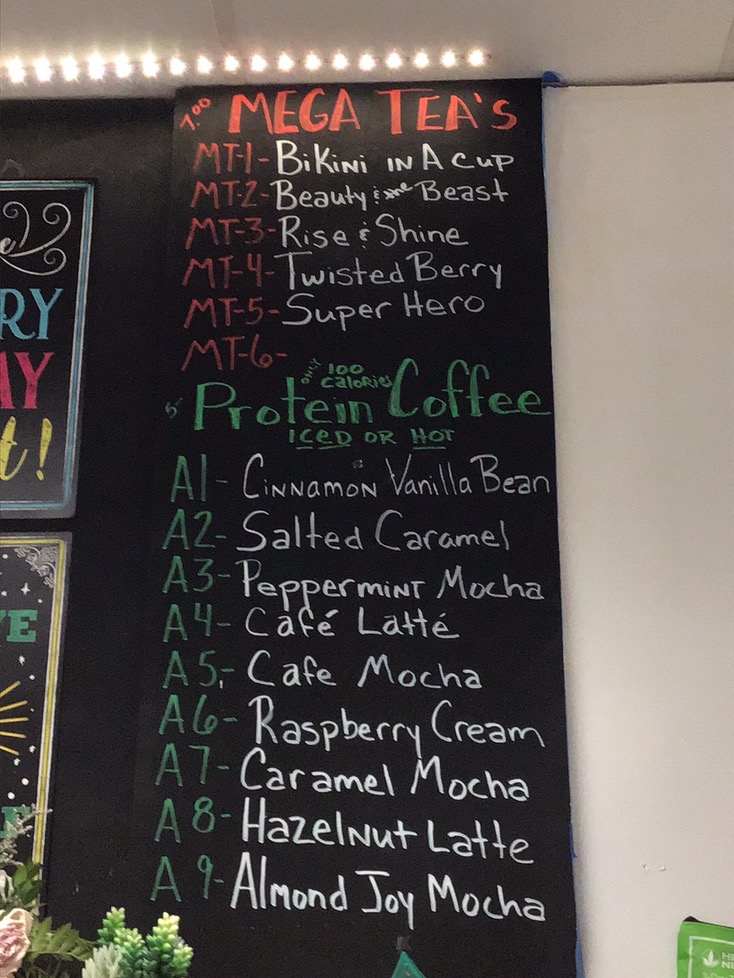 7.00 MEGA TEA'S
MT-1- BiKiNi IN A CUP
MT-2- Beauty & the Beast
MT-3- Rise & Shine
MT-4- Twisted Berry
MT-5- Super Hero
MT-6-
ONLY 100 Calories
5 Protein Coffee
ICED OR HOT
A1- CiNNamoN Vanilla Bean
A2- Salted Caramel
A3- PeppermiNT Mocha
A4- Café Latté
A5- Cafe Mocha
A6- Raspberry Cream
A7- Caramel Mocha
A8- HazelNut Latte
A9- Almond Joy Mocha
RY
AY
t!
E